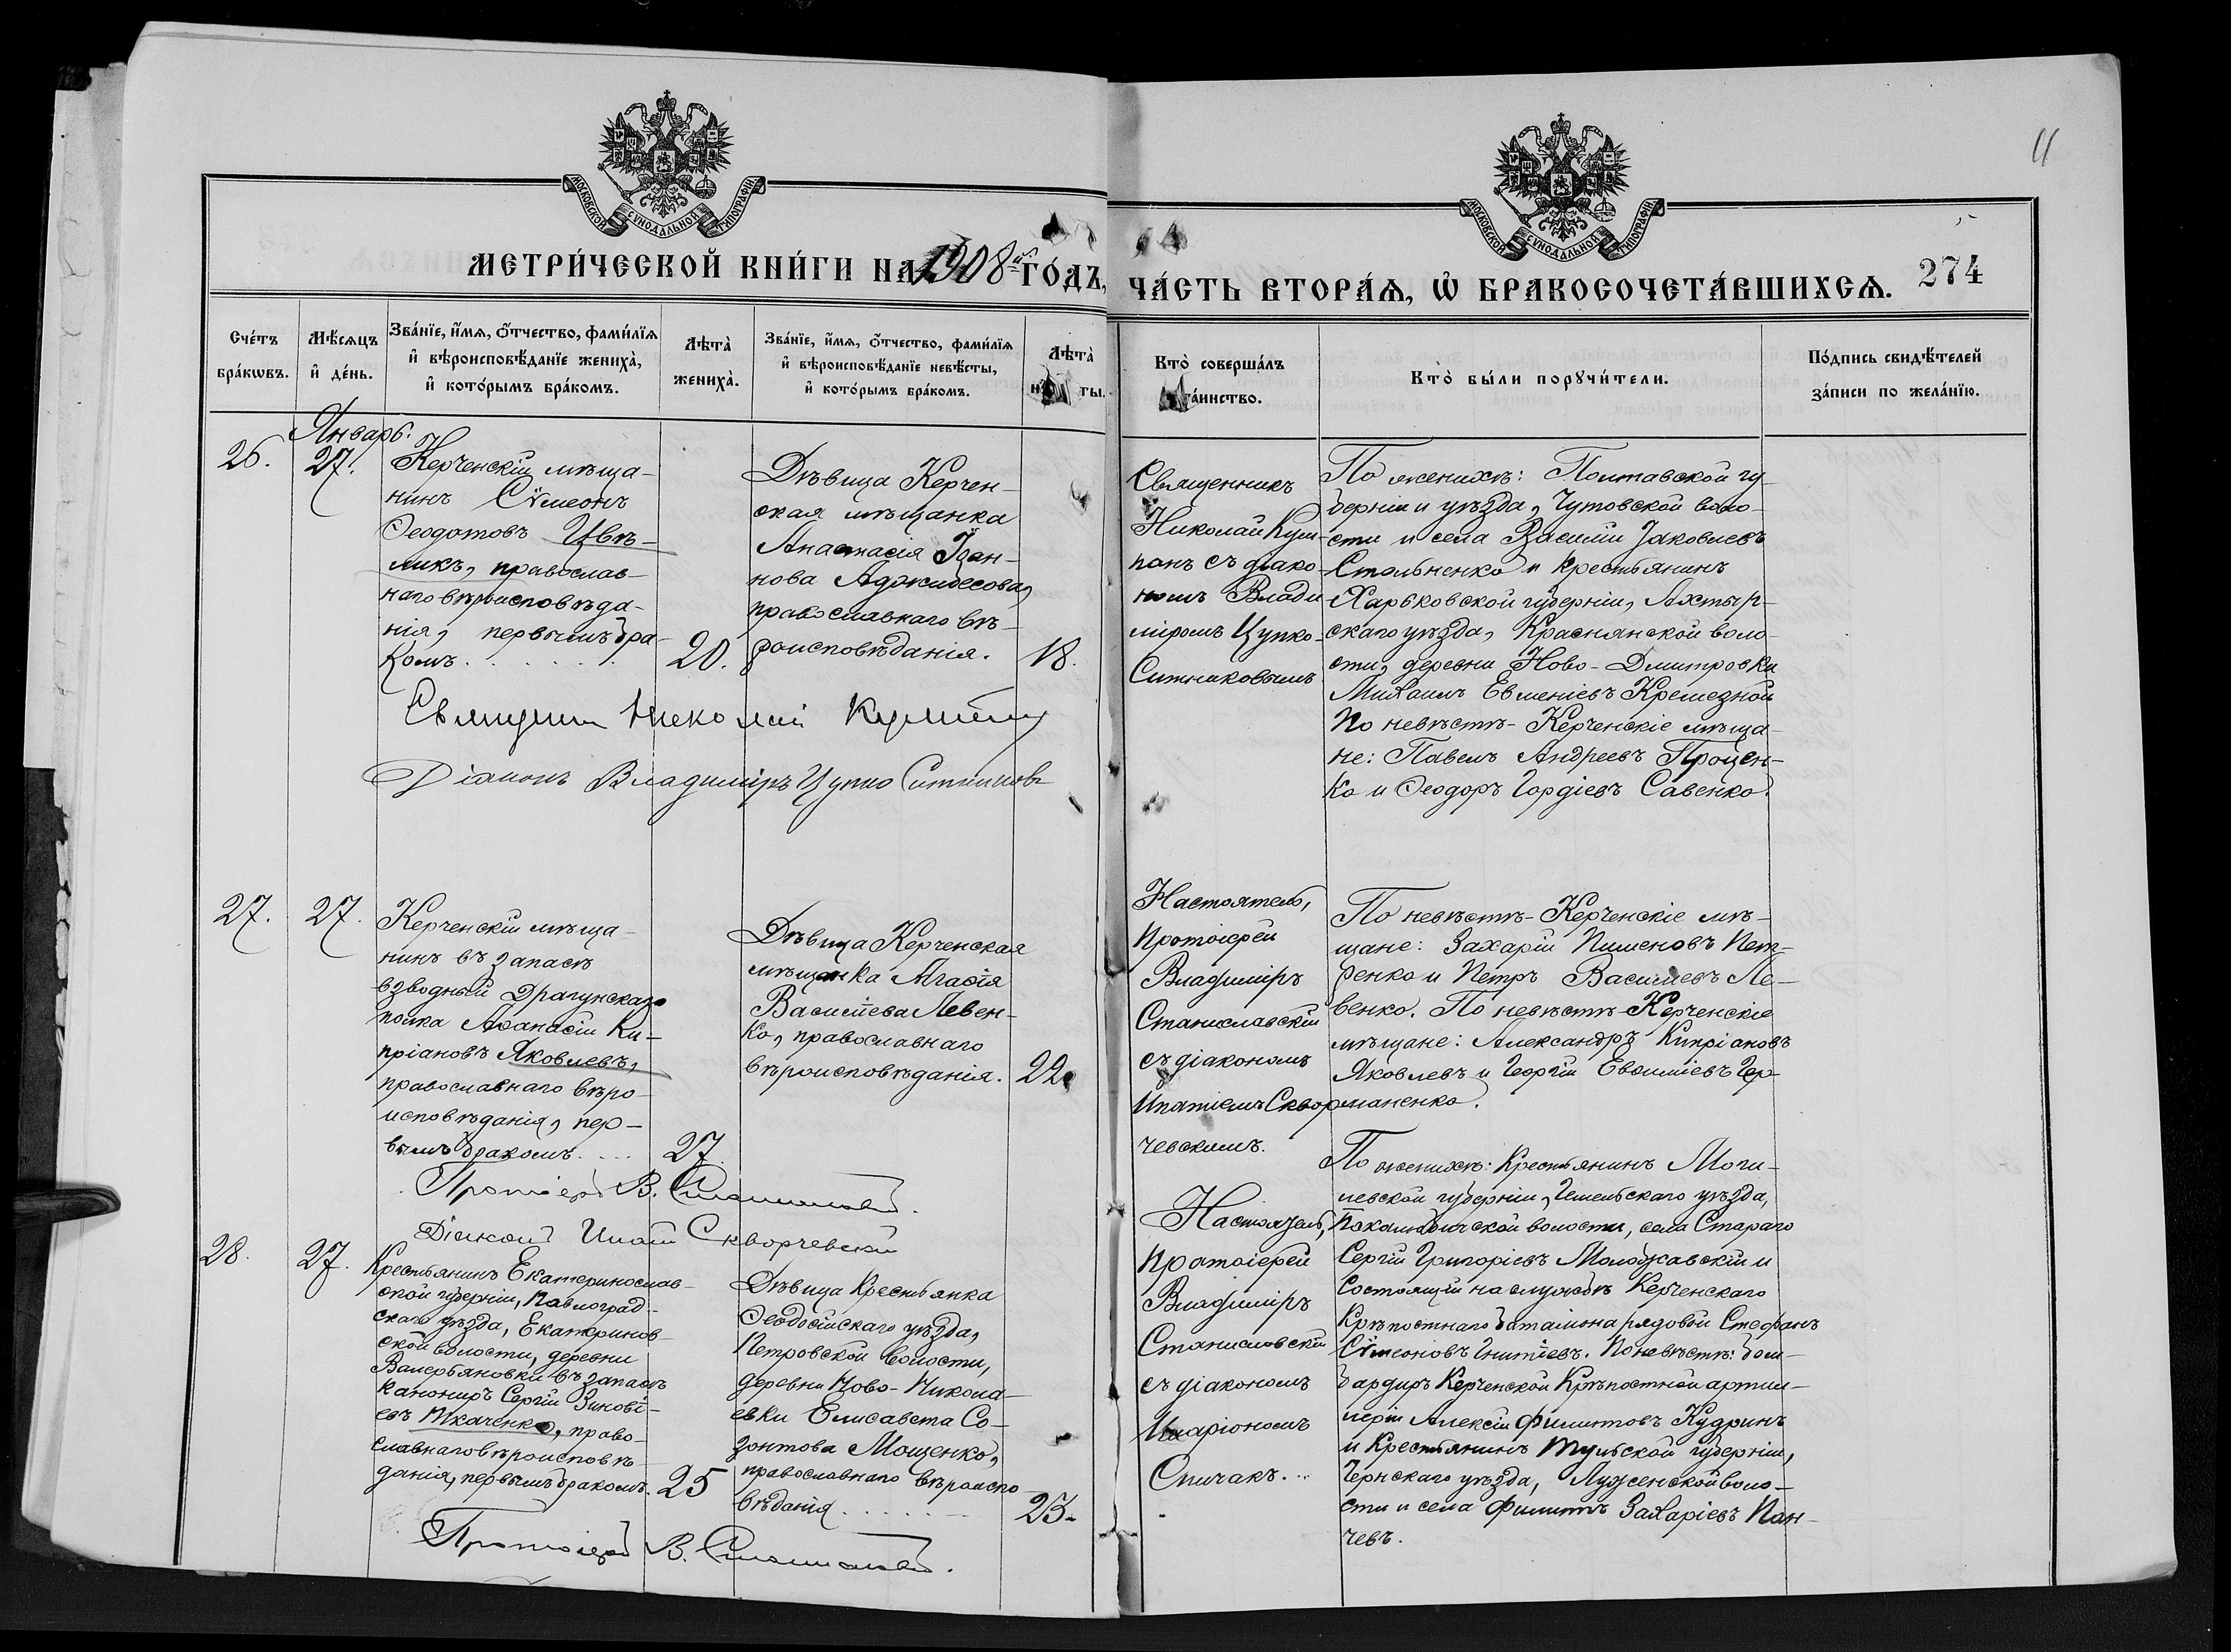 11
МОСКОВСКОЙ СѴНОДАЛЬНОЙ ТИПОГРАФІИ
МОСКОВСКОЙ СѴНОДАЛЬНОЙ ТИПОГРАФІИ
МЕТРИ́ЧЕСКОЙ КНИ́ГИ НА 1908-й ГО́ДЪ,
ЧА́СТЬ ВТОРА́Ѧ, Ѡ҆ БРАКОСОЧЕТА́ВШИХСѦ.
274
Сче́тъ бра́кѡвъ.
Мѣ́сѧцъ и҆ де́нь.
Зва́нїе, и҆́мѧ, ѻ҆́тчество, фами́лїѧ и҆ вѣроисповѣ́данїе жениха̀, и҆ кото́рымъ бра́комъ.
Лѣта̀ жениха̀.
Зва́нїе, и҆́мѧ, ѻ҆́тчество, фами́лїѧ и҆ вѣроисповѣ́данїе невѣ́сты, и҆ кото́рымъ бра́комъ.
Лѣта̀ не ты.
Кто̀ соверша́лъ та́инство.
Кто̀ бы́ли порꙋчи́тели.
По́дпись свидѣ́телей за́писи по жела́нїю.
Январь.
26.
27.
Керченскій мѣща-
нинъ Сѵмеонъ
Ѳеодотовъ Цвѣ-
ликъ, православ-
наго вѣроисповѣда-
нія, первымъ бра-
комъ.
20.
Дѣвица Керчен-
ская мѣщанка
Анастасія Іоан-
нова Аджидесова,
православнаго вѣ-
роисповѣданія.
18.
Священникъ
Николай Кум-
панъ съ діако-
номъ Влади-
міромъ Цупко-
Ситниковымъ
По женихѣ: Полтавской гу-
берніи и уѣзда, Чутовской воло-
сти и села Василій Іаковлевъ
Стольненко и крестьянинъ
Харьковской губерніи, Ахтыр-
скаго уѣзда, Краснянской воло-
сти, деревни Ново-Дмитровки
Михаилъ Евменіевъ Кремезной
По невѣстѣ - Керченскіе мѣща-
не: Павелъ Андреевъ Процен-
ко и Ѳеодоръ Гордіевъ Савенко.
Священник Николай Кумпан
Діаконъ Владиміръ Цупко Ситниковъ
27.
27.
Керченскій мѣща-
нинъ въ запасѣ
взводный Драгунскаго
полка Аѳанасій Ки-
пріановъ Яковлевъ,
православнаго вѣро-
исповѣданія, пер-
вымъ бракомъ.
27
Дѣвица Керченская
мѣщанка Агаѳія
Василіева Левен-
ко, православнаго
вѣроисповѣданія.
22.
Настоятель,
Протоіерей
Владиміръ
Станиславскій
съ діакономъ
Ипатіемъ Сквор-
чевскимъ.
По невѣстѣ - Керченскіе мѣ-
щане: Захарій Пименовъ Пет-
ренко и Петръ Василіевъ Ле-
венко. По невѣстѣ - Керченскіе
мѣщане: Александръ Кипріановъ
Яковлевъ и Георгій Евѳиміевъ Гер-
маненко.
Протоіерей В. Станиславскій.
Діаконъ Ипатій Скворчевскій
28.
27.
Крестьянинъ Екатеринослав-
ской губерніи, Павлоград-
скаго уѣзда, Екатеринов-
ской волости, деревни
Валерьяновки въ запасѣ
канониръ Сергій Зинові-
евъ Ткаченко, право-
славнаго вѣроисповѣ-
данія, первымъ бракомъ.
25
Дѣвица крестьянка
Ѳеодосійскаго уѣзда,
Петровской волости,
деревни Ново-Никола-
евки Елисавета Со-
зонтова Мощенко,
православнаго вѣроиспо-
вѣданія
23.
Настоятель,
Протоіерей
Владиміръ
Станиславскій
съ діакономъ
Иларіономъ
Спичакъ.
По женихѣ: Крестьянинъ Моги-
левской губерніи, Гомельскаго уѣзда,
Покалюбичской волости, села Стараго
Сергій Григоріевъ Моложавскій и
состоящій на службѣ Керченскаго
Крѣпостнаго баталіона рядовой Стефанъ
Сѵмеоновъ Гнитіевъ. По невѣстѣ: бом-
бардиръ Керченской Крѣпостной артил-
леріи Алексій Филипповъ Кудринъ
и крестьянинъ Тульской губерніи,
Чернскаго уѣзда, Луженской воло-
сти и села Филиппъ Захаріевъ Пан-
чевъ.
Протоіерей В. Станиславскій.